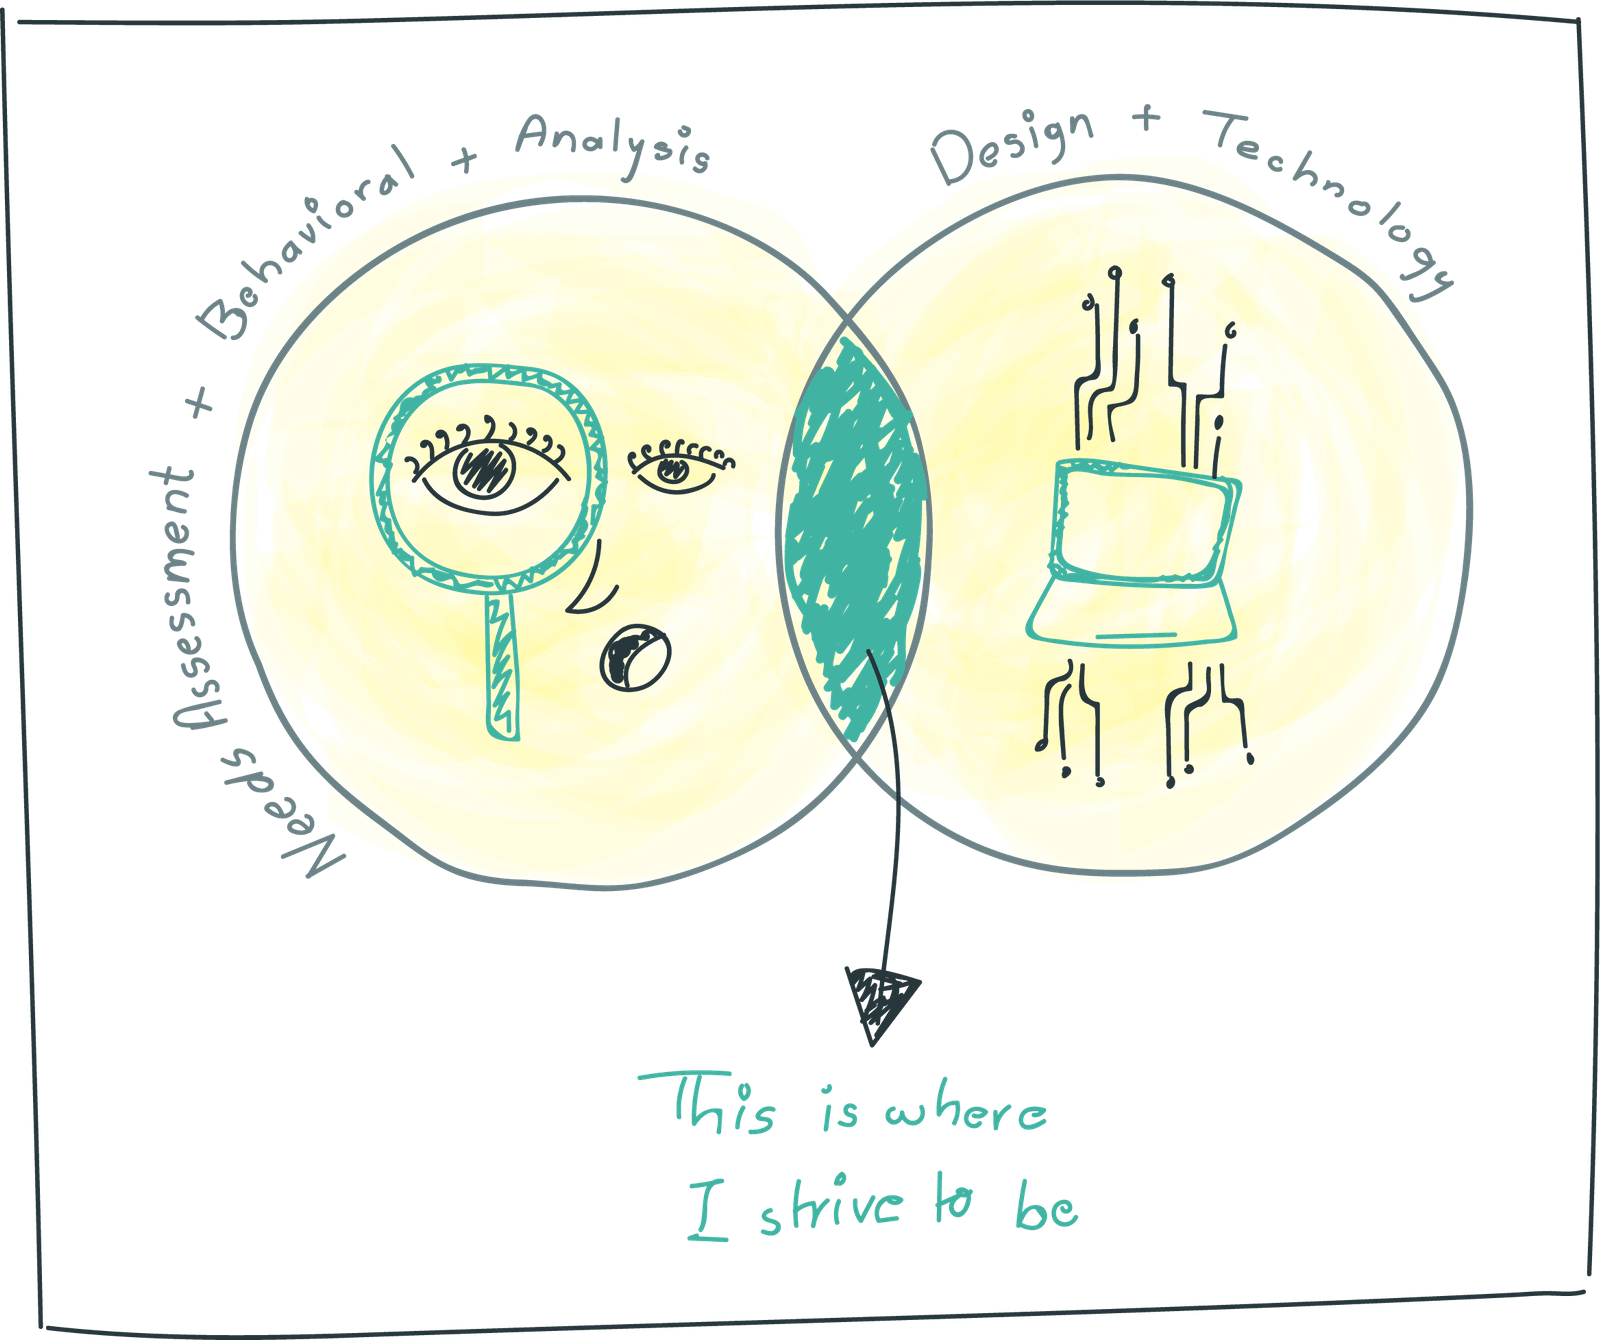 Needs Assessment + Behavioral + Analysis
Design + Technology
This is where
I strive to be